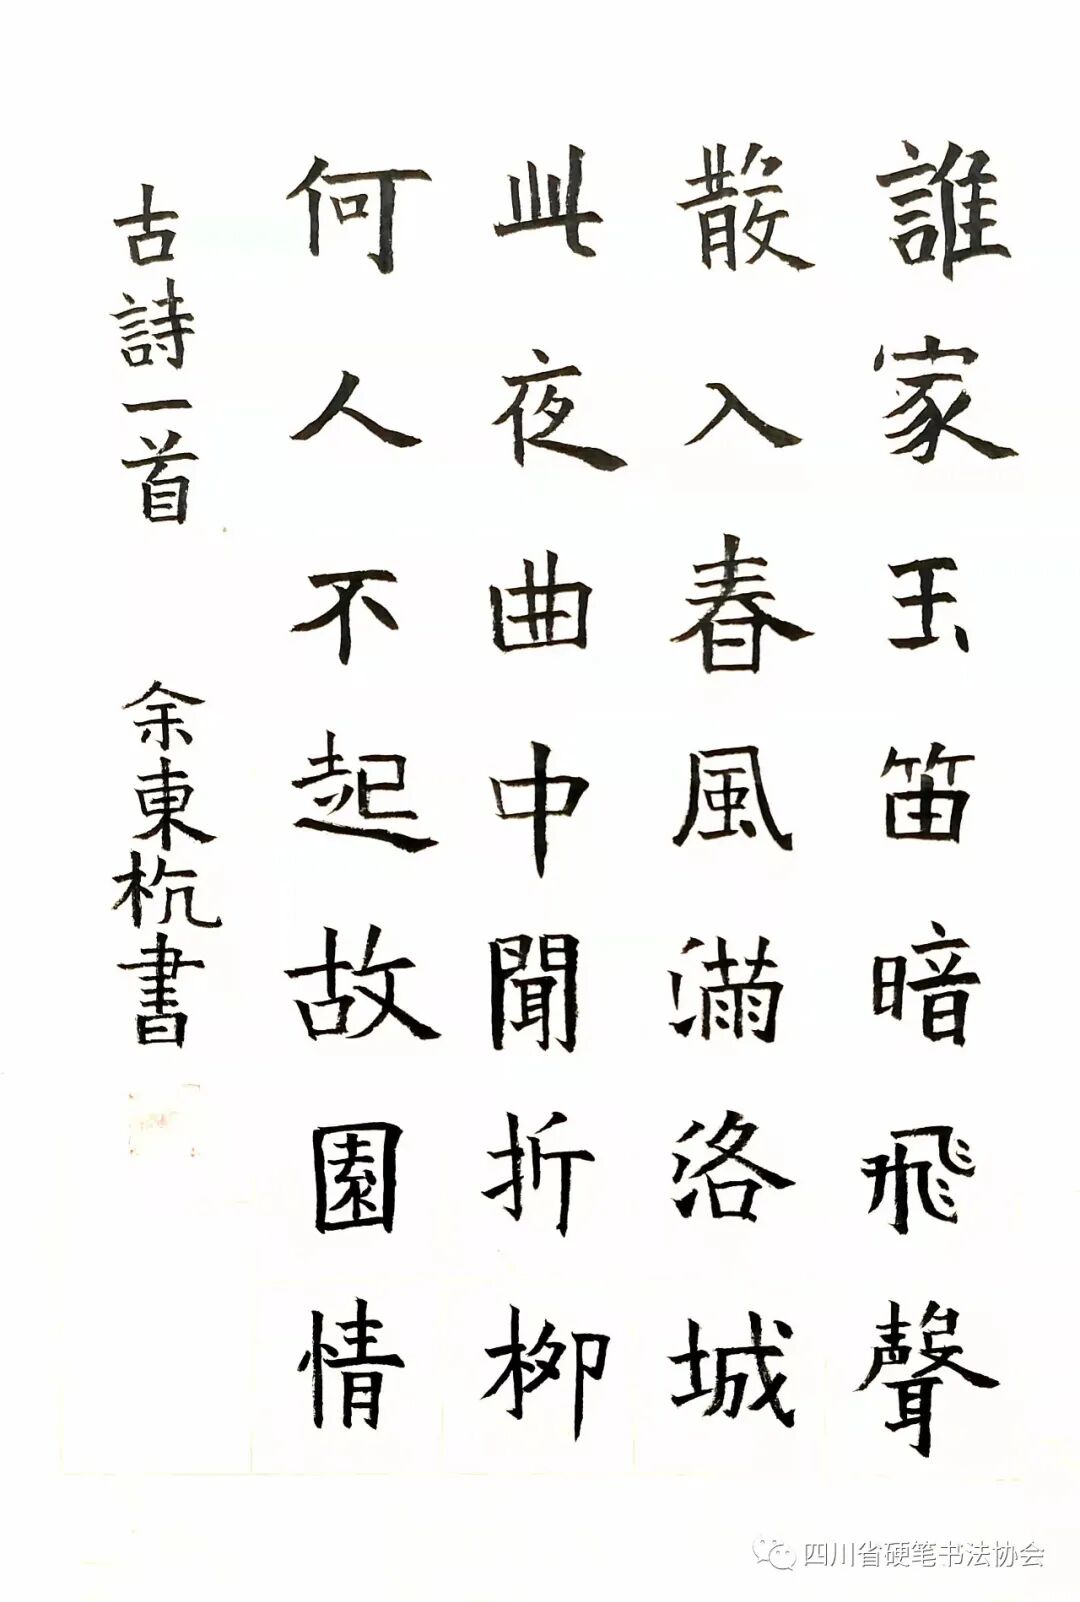 誰家玉笛暗飛聲
散入春風滿洛城
此夜曲中聞折柳
何人不起故園情
古詩一首 余東杭書
四川省硬笔书法协会